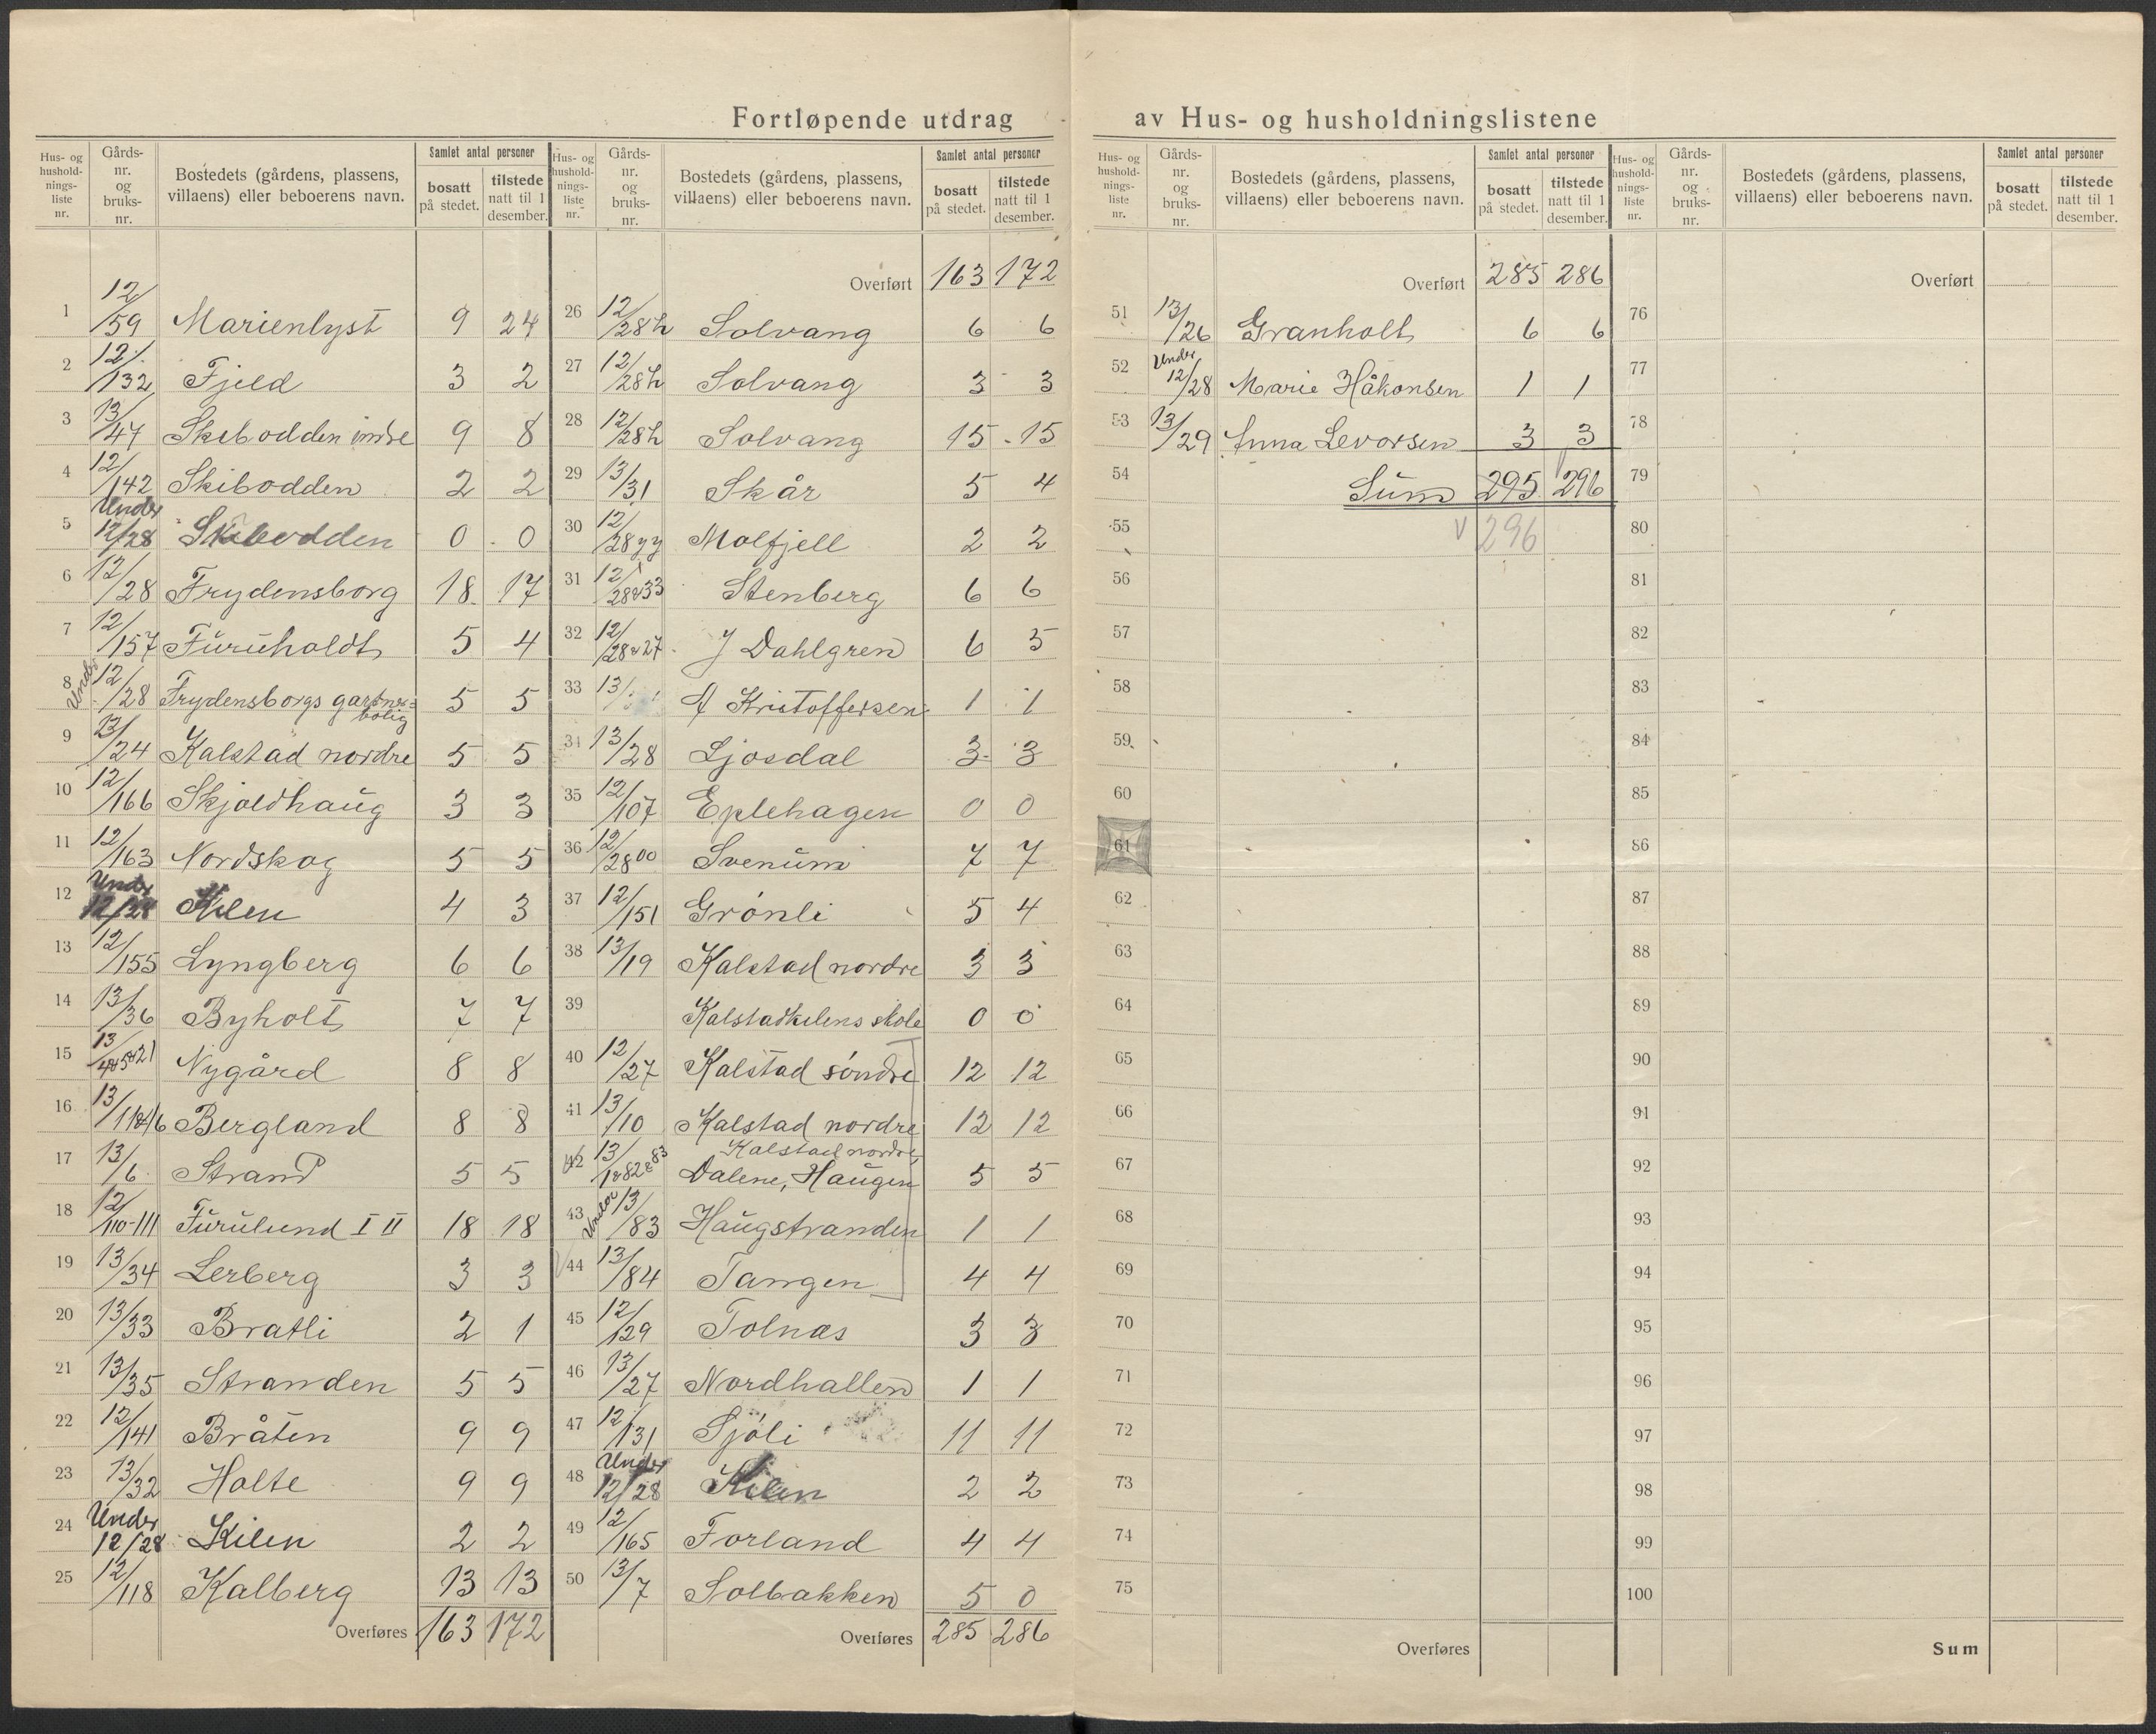 Fortløpende utdrag av Hus- og husholdningslistene
Hus- og husholdnings- liste nr. Gårds- nr. og bruks- nr. Bostedets (gårdens, plassens, villaens) eller beboerens navn. Samlet antal personer bosatt på stedet. tilstede natt til 1 desember.
1 12/59 Marienlyst 9 24
2 12/132 Fjeld 3 2
3 13/47 Skibodden indre 9 8
4 12/142 Skibodden 2 2
5 Under 12/28 Skibodden 0 0
6 12/28 Frydensborg 18 17
7 12/157 Furuholdt 5 4
8 Under 12/28 Frydensborgs gartner= bolig 5 5
9 13/24 Kalstad nordre 5 5
10 12/166 Skjoldhaug 3 3
11 12/163 Nordskog 5 5
12 Under 12/28 Kilen 4 3
13 12/155 Lyngberg 6 6
14 13/36 Byholt 7 7
15 13/ Nygård 8 8
16 13/ Bergland 8 8
17 13/6 Strand 5 5
18 12/110-111 Furulund I II 18 18
19 13/34 Lerberg 3 3
20 13/33 Bratli 2 1
21 13/35 Stranden 5 5
22 12/141 Bråten 9 9
23 13/32 Holte 9 9
24 Under 12/28 Kilen 2 2
25 12/118 Kalberg 13 13
Overføres 163 172
Hus- og husholdnings- liste nr. Gårds- nr. og bruks- nr. Bostedets (gårdens, plassens, villaens) eller beboerens navn. Samlet antal personer bosatt på stedet. tilstede natt til 1 desember.
Overført 163 172
26 12/28h Solvang 6 6
27 12/28h Solvang 3 3
28 12/28h Solvang 15 15
29 13/31 Skår 5 4
30 12/28yy Molfjell 2 2
31 12/28&33 Stenberg 6 6
32 12/28&27 J Dahlgren 6 5
33 13/ A Kristoffersen 1 1
34 13/28 Ljosdal 3 3
35 12/107 Eplehagen 0 0
36 12/28oo Svenum 7 7
37 12/151 Grönli 5 4
38 13/19 Kalstad nordre 3 3
39 Kalstadkilens skole 0 0
40 12/27 Kalstad söndre 12 12
41 13/10 Kalstad nordre 12 12
42 13/1&82&83 Kalstad nordre, Dalene, Haugen 5 5
43 Under 13/83 Haugstranden 1 1
44 13/84 Tangen 4 4
45 12/129 Tolnas 3 3
46 13/27 Nordhallen 1 1
47 12/131 Sjöli 11 11
48 Under 12/28 Kilen 2 2
49 12/165 Forland 4 4
50 13/7 Solbakken 5 0
Overføres 285 286
Hus- og husholdnings- liste nr. Gårds- nr. og bruks- nr. Bostedets (gårdens, plassens, villaens) eller beboerens navn. Samlet antal personer bosatt på stedet. tilstede natt til 1 desember.
Overført 285 286
51 13/26 Granholt 6 6
52 Under 12/28 Marie Håkonsen 1 1
53 13/29 Anna Levorsen 3 3
54 Sum 295 296
55 V 296
56
57
58
59
60
61
62
63
64
65
66
67
68
69
70
71
72
73
74
75
Overføres
Hus- og husholdnings- liste nr. Gårds- nr. og bruks- nr. Bostedets (gårdens, plassens, villaens) eller beboerens navn. Samlet antal personer bosatt på stedet. tilstede natt til 1 desember.
Overført
76
77
78
79
80
81
82
83
84
85
86
87
88
89
90
91
92
93
94
95
96
97
98
99
100
Sum